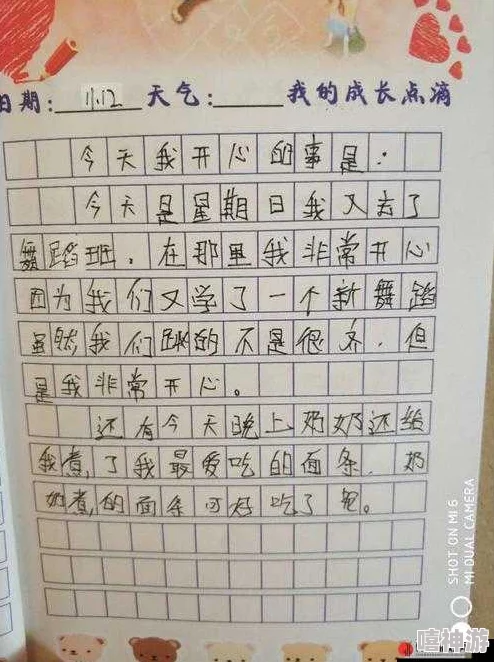 日期: 11.12 天气: 我的成长点滴
今天我开心的事是:
今天是星期日我又去了
舞蹈班。在那里我非常开心
因为我们又学了一个新舞蹈
虽然我们跳的不是很齐,但
是我非常开心。
还有今天晚上奶奶还给
我煮,了我最爱吃的面条.奶
奶煮,的面条可好吃了 。
SHOT ON MI 6
MI DUAL CAMERA
嘻神游